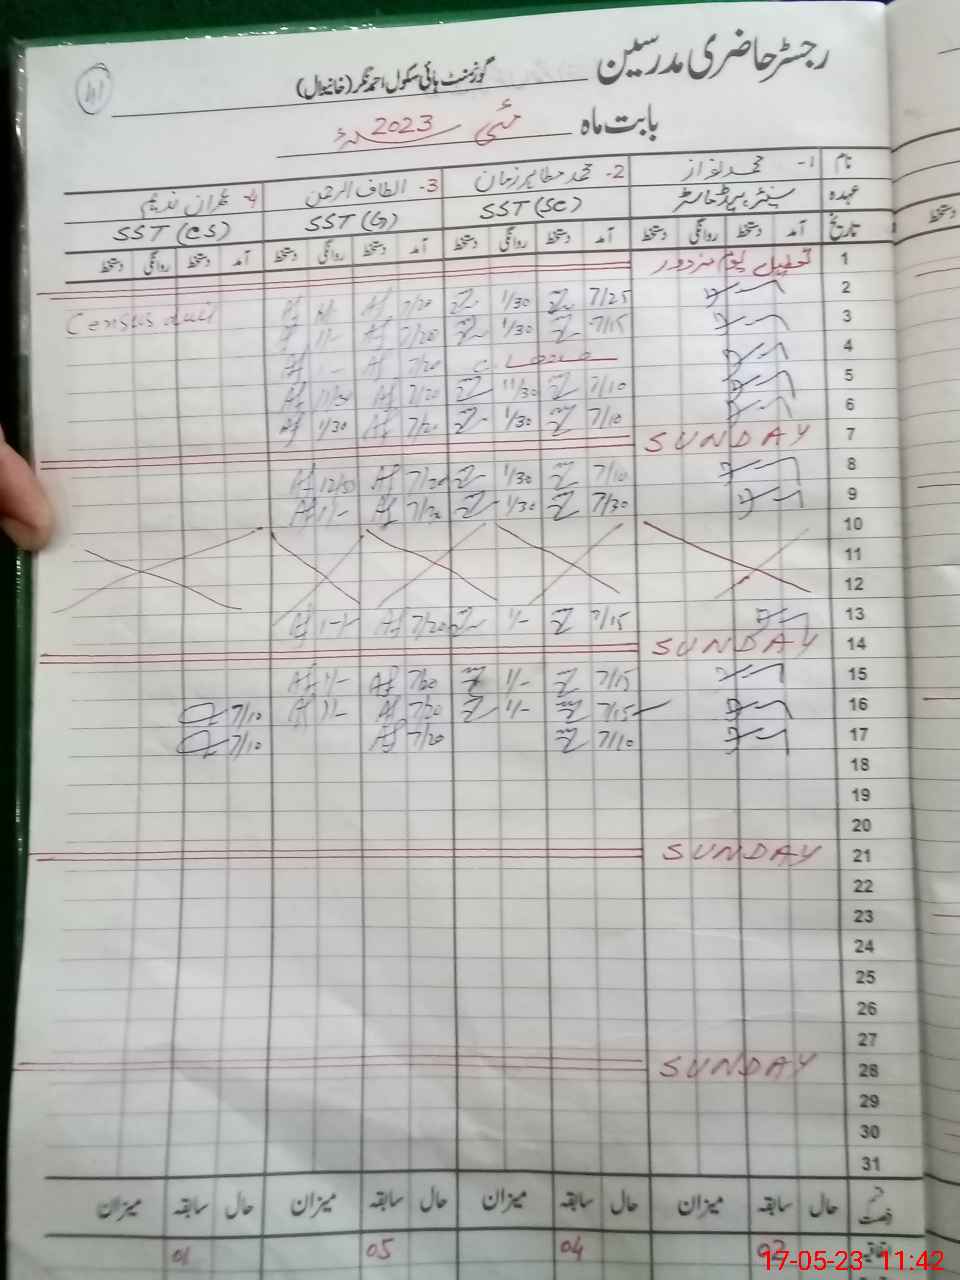 رجسٹر حاضری مدرسین
گورنمنٹ ہائی سکول احمد نگر (خانیوال)
41
بابت ماہ مئی 2023ء
نام 1- محمد نواز 2- محمد مطاہر زمان 3- الطاف الرحمن 4- عمران ندیم
عہدہ سینئر ہیڈ ماسٹر SST (SC) SST (G) SST (CS)
تاریخ آمد دستخط روانگی دستخط آمد دستخط روانگی دستخط آمد دستخط روانگی دستخط آمد دستخط روانگی دستخط
1 تعطیل یوم مزدور
2 7/25 1/30 7/20
3 7/15 1/30 7/20 1/- Census duti
4 C. Leave 7/20
5 7/10 11/30 7/20 11/30
6 7/10 1/30 7/20 1/30
7 SUNDAY
8 7/10 1/30 7/20 12/30
9 7/30 1/30 7/20 1/-
10
11
12
13 7/15 1/- 7/20 1-/
14 SUNDAY
15 7/15 1/- 7/20 1/-
16 7/15 1/- 7/20 1/- 7/10
17 7/10 7/20 7/10
18
19
20
21 SUNDAY
22
23
24
25
26
27
28 SUNDAY
29
30
31
حال سابقہ میزان حال سابقہ میزان حال سابقہ میزان حال سابقہ میزان
02 04 05 01
17-05-23 11:42